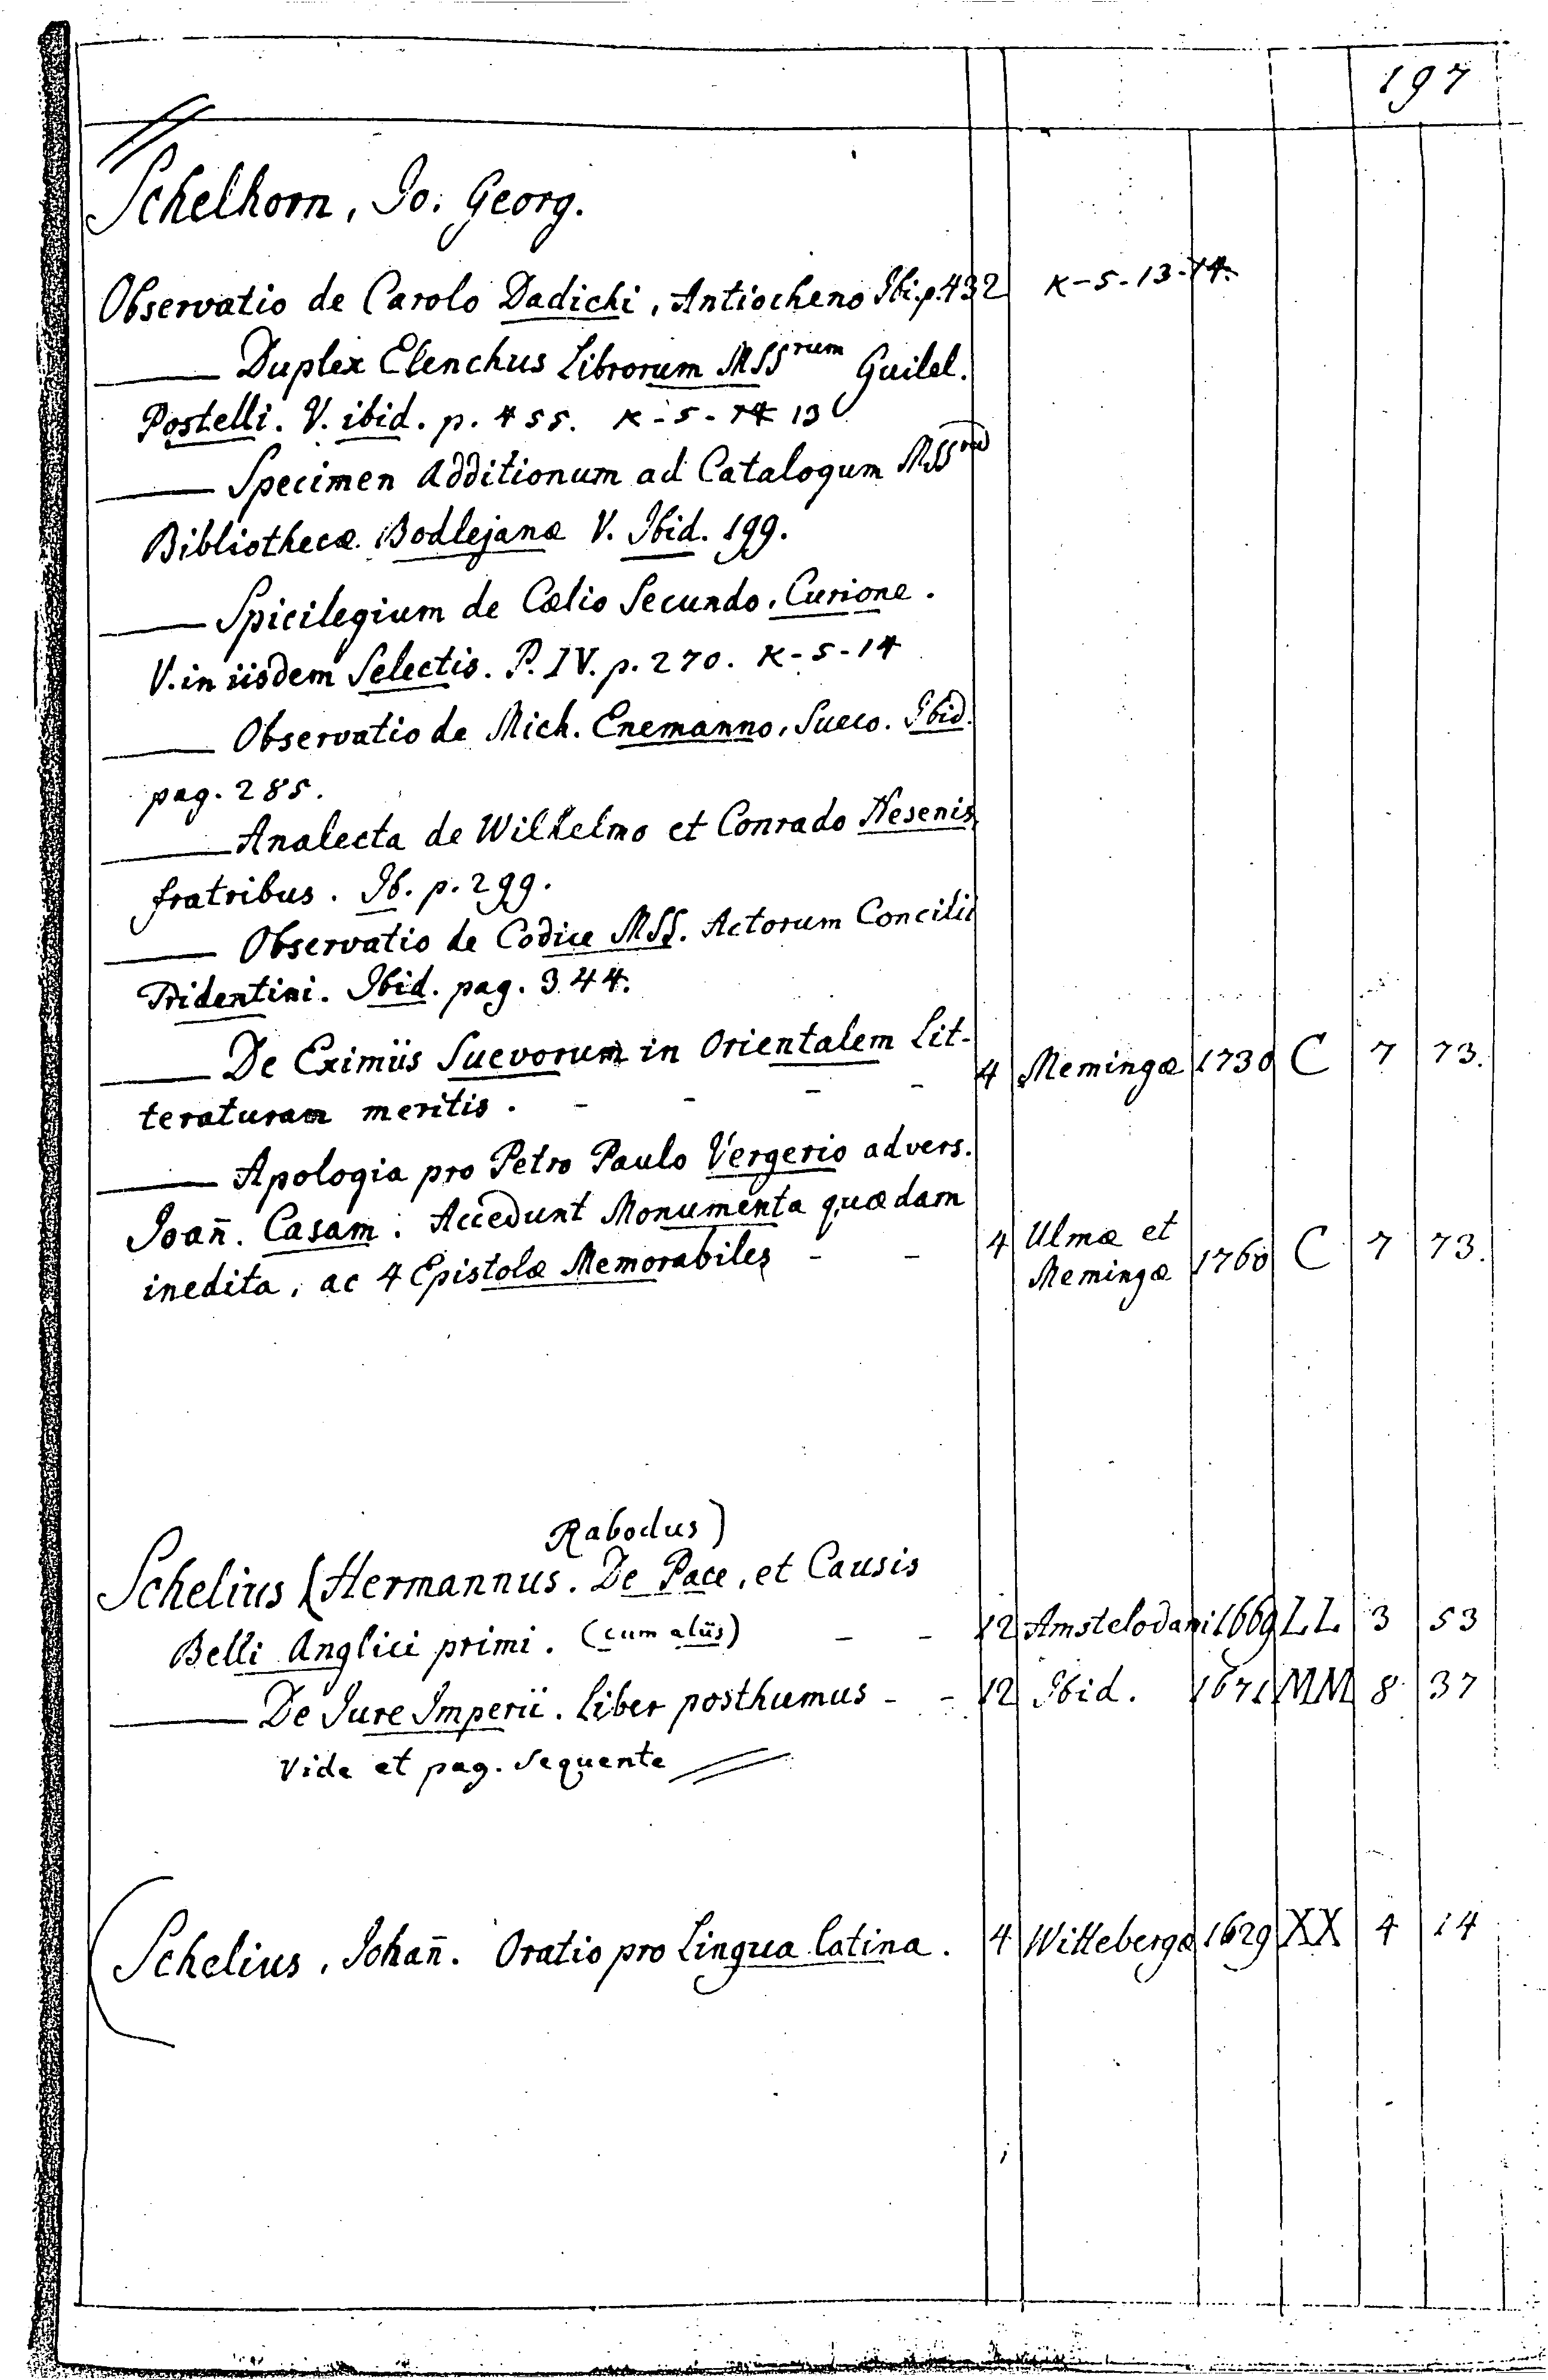 197
Schelhorn, Jo. Georg.
Observatio de Carolo Dadichi, Antiocheno Ibi. p. 432 K-5-13-14.
—— Duplex Elenchus Librorum MSSrum Guilel.
Postelli. V. ibid. p. 455. K-5-14 13
—— Specimen Additionum ad Catalogum MSS
Bibliothecæ Bodlejanæ V. Ibid. 199.
—— Spicilegium de Cælio Secundo, Curione.
V. in iisdem Selectis. P. IV. p. 270. K-5-14
—— Observatio de Mich. Enemanno, Sueco. Ibid.
pag. 285.
—— Analecta de Wilhelmo et Conrado Nesenis
fratribus. Ib. p. 299.
—— Observatio de Codice MSS. Actorum Concilii
Tridentini. Ibid. pag. 344.
—— De Eximiis Suevorum in Orientalem Lit-
teraturam meritis. - - - - 4 Memingæ 1730 C 7 73.
—— Apologia pro Petro Paulo Vergerio advers.
Joañ. Casam. Accedunt Monumenta quædam
inedita, ac 4 Epistolæ Memorabiles - - 4 Ulmæ et Memingæ 1760 C 7 73.
Rabodus)
Schelius (Hermannus. De Pace, et Causis
Belli Anglici primi. (cum aliis) - - 12 Amstelodami 1669 LL 3 53
—— De Jure Imperii. Liber posthumus - - 12 Ibid. 1671 MM 8 37
Vide et pag. sequente
Schelius, Johañ. Oratio pro Lingua latina. 4 Wittebergæ 1629 XX 4 14